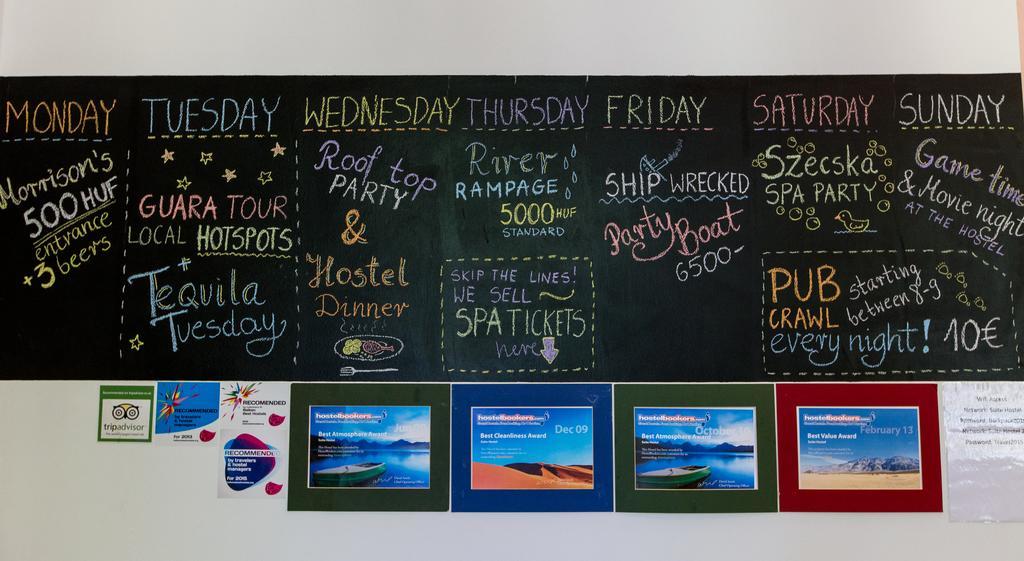 MONDAY
Morrison's
500 HUF
entrance
+3 beers
TUESDAY
GUARA TOUR
LOCAL HOTSPOTS
Tequila
Tuesday
WEDNESDAY
Roof top
PARTY
&
Hostel
Dinner
THURSDAY
River
RAMPAGE
5000 HUF
STANDARD
SKIP THE LINES!
WE SELL
SPA TICKETS
here
FRIDAY
SHIP WRECKED
Party Boat
6500-
SATURDAY
Szecska
SPA PARTY
SUNDAY
Game time
& Movie night
AT THE HOSTEL
PUB
CRAWL
starting
between 8-9
every night! 10€
tripadvisor
RECOMMENDED
by travelers
& hostel
managers
For 2013
RECOMENDED
Balkan
Best Hostels
RECOMMENDED
by travelers
& hostel
managers
For 2015
hostelbookers.com
Best Atmosphere Award
hostelbookers.com
Dec 09
Best Cleanliness Award
hostelbookers.com
October
Best Atmosphere Award
hostelbookers.com
February 13
Best Value Award
Wifi Access
Network: Suite Hostel
Network: Suite Hostel